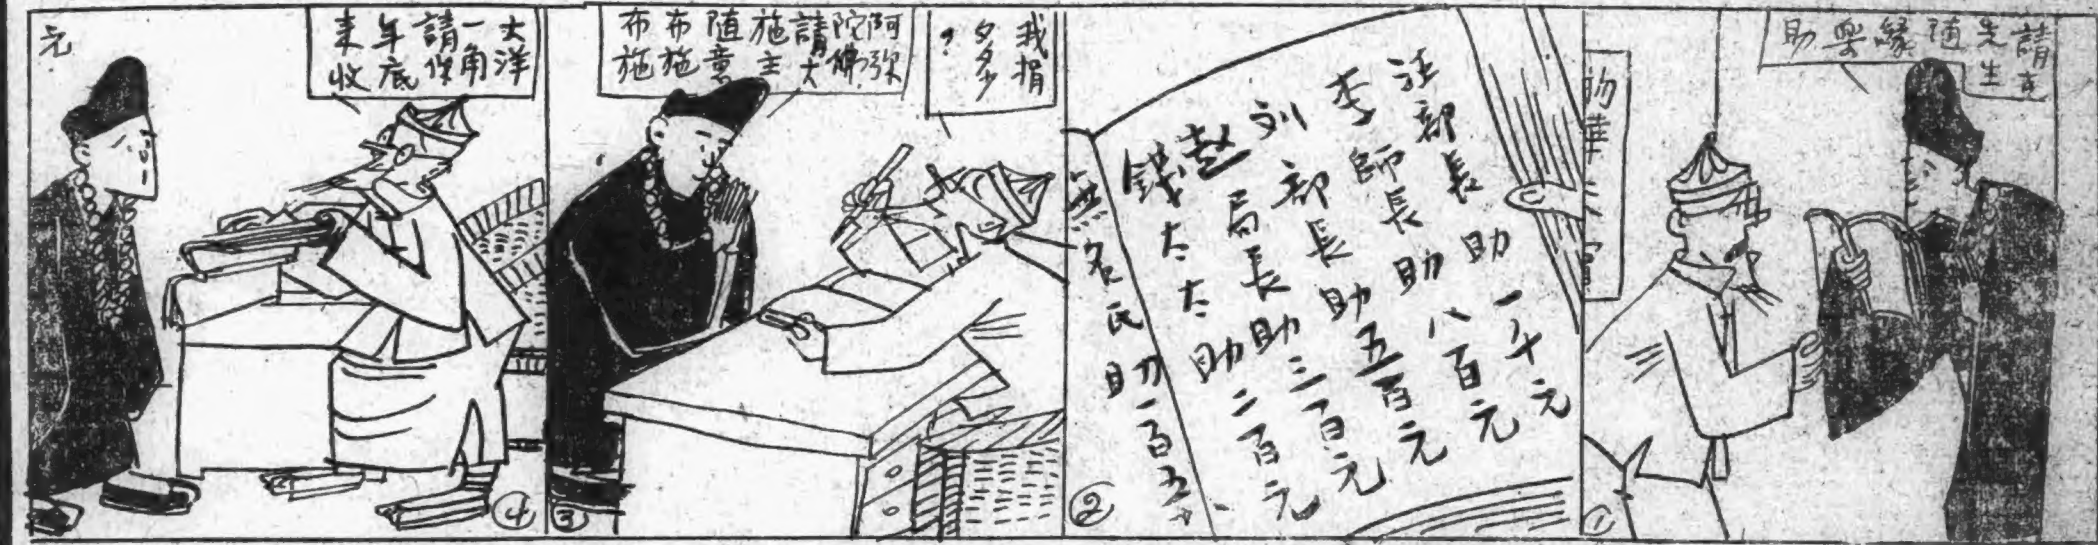 請
先生
随
緣
樂
助
物華天寶
①
汪部長助一千元
李師長助八百元
刘部長助五百元
赵局長助三百元
錢太太助二百元
無名氏助一百五十
②
我捐
多少?
阿弥
陀佛
請大
施主
随意
布施
布施
③
大洋
一角
請你
年底
来收
元
④